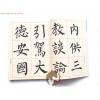 內供三
教談論
引駕大
德安國